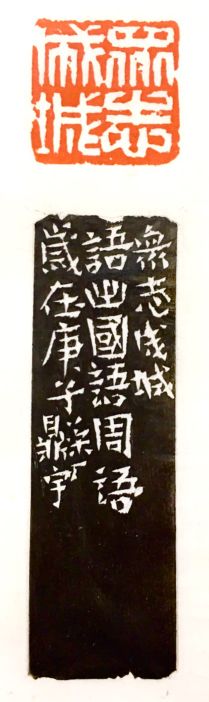 眾志
成城
眾志成城
語出國語周語
歲在庚子鼎宇